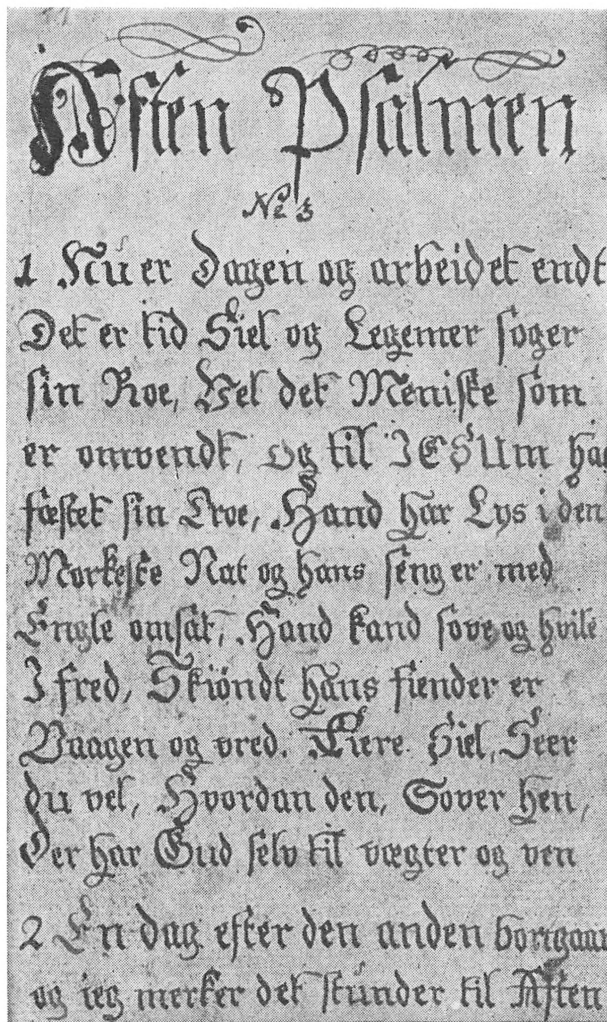 Aften Psalmen
No 3
1 Nu er Dagen og arbeidet endt
Det er tid Siel og Legemer søger
sin Roe, Vel det Meniske som
er omvendt, og til JESUm har
fæstet sin Troe, Hand har Lys i den
Mørkeste Nat og hans seng er med
Engle omsat, Hand kand sove og hvile
I fred, Skiøndt hans fiender er
Vaagen og vred. Kiere Siel, Seer
du vel, Hvordan den, Sover hen,
Der har Gud selv til vægter og ven
2 En dag efter den anden bortgaar
og ieg merker det stunder til Aften